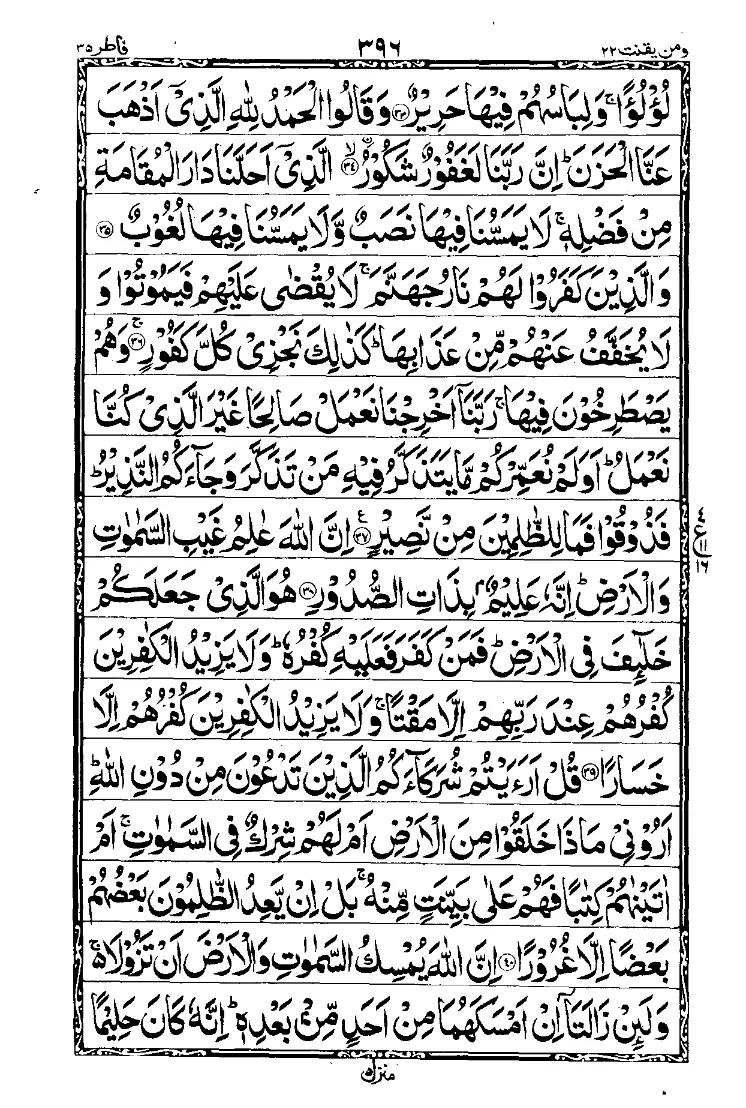 ومن يقنت ٢٢ ٣٩٦ فاطر ٣٥
لُؤْلُؤًا ۚ وَلِبَاسُهُمْ فِيْهَا حَرِيْرٌ ﴿۳۳﴾ وَقَالُوا الْحَمْدُ لِلّٰهِ الَّذِىْٓ اَذْهَبَ
عَنَّا الْحَزَنَ ؕ اِنَّ رَبَّنَا لَغَفُوْرٌ شَكُوْرٌ ۙ ﴿۳۴﴾ الَّذِىْٓ اَحَلَّنَا دَارَ الْمُقَامَةِ
مِنْ فَضْلِهٖ ۚ لَا يَمَسُّنَا فِيْهَا نَصَبٌ وَّلَا يَمَسُّنَا فِيْهَا لُغُوْبٌ ﴿۳۵﴾
وَالَّذِيْنَ كَفَرُوْا لَهُمْ نَارُ جَهَنَّمَ ۚ لَا يُقْضٰى عَلَيْهِمْ فَيَمُوْتُوْا وَ
لَا يُخَفَّفُ عَنْهُمْ مِّنْ عَذَابِهَا ؕ كَذٰلِكَ نَجْزِىْ كُلَّ كَفُوْرٍ ۚ ﴿۳۶﴾ وَهُمْ
يَصْطَرِخُوْنَ فِيْهَا ۚ رَبَّنَآ اَخْرِجْنَا نَعْمَلْ صَالِحًا غَيْرَ الَّذِىْ كُنَّا
نَعْمَلُ ؕ اَوَلَمْ نُعَمِّرْكُمْ مَّا يَتَذَكَّرُ فِيْهِ مَنْ تَذَكَّرَ وَجَآءَكُمُ النَّذِيْرُ ؕ
فَذُوْقُوْا فَمَا لِلظّٰلِمِيْنَ مِنْ نَّصِيْرٍ ﴿۳۷﴾ ع اِنَّ اللّٰهَ عٰلِمُ غَيْبِ السَّمٰوٰتِ
٤ ع ١١ ١٦
وَالْاَرْضِ ؕ اِنَّهٗ عَلِيْمٌۢ بِذَاتِ الصُّدُوْرِ ﴿۳۸﴾ هُوَ الَّذِىْ جَعَلَكُمْ
خَلٰٓئِفَ فِى الْاَرْضِ ؕ فَمَنْ كَفَرَ فَعَلَيْهِ كُفْرُهٗ ؕ وَلَا يَزِيْدُ الْكٰفِرِيْنَ
كُفْرُهُمْ عِنْدَ رَبِّهِمْ اِلَّا مَقْتًا ۚ وَلَا يَزِيْدُ الْكٰفِرِيْنَ كُفْرُهُمْ اِلَّا
خَسَارًا ﴿۳۹﴾ قُلْ اَرَءَيْتُمْ شُرَكَآءَكُمُ الَّذِيْنَ تَدْعُوْنَ مِنْ دُوْنِ اللّٰهِ ؕ
اَرُوْنِىْ مَاذَا خَلَقُوْا مِنَ الْاَرْضِ اَمْ لَهُمْ شِرْكٌ فِى السَّمٰوٰتِ ۚ اَمْ
اٰتَيْنٰهُمْ كِتٰبًا فَهُمْ عَلٰى بَيِّنَتٍ مِّنْهُ ۚ بَلْ اِنْ يَّعِدُ الظّٰلِمُوْنَ بَعْضُهُمْ
بَعْضًا اِلَّا غُرُوْرًا ﴿۴۰﴾ اِنَّ اللّٰهَ يُمْسِكُ السَّمٰوٰتِ وَالْاَرْضَ اَنْ تَزُوْلَا ۚ ۬
وَلَئِنْ زَالَتَآ اِنْ اَمْسَكَهُمَا مِنْ اَحَدٍ مِّنْۢ بَعْدِهٖ ؕ اِنَّهٗ كَانَ حَلِيْمًا
منزل ٥